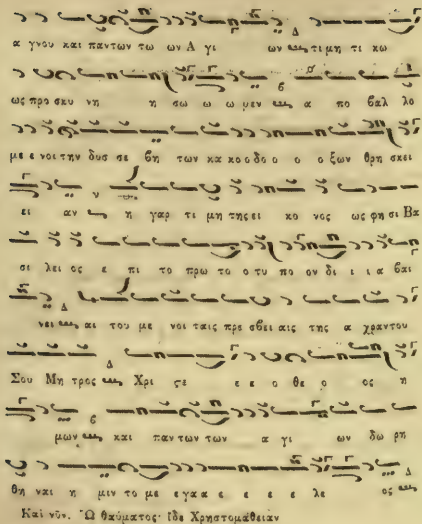 α γνου και παντων τω ων Α γι ων τι μη τι κω
ως προ σκυ νη η σω ω ω μεν α πο βαλ λο
με ε νοι την δυσ σε βη των κα κο ο δο ο ο ο ξων θρη σκει
ει αν η γαρ τι μη της ει κο νος ως φη σι Βα
σι λειος ε πι το πρω το ο τυ πο ον δι ι ι α βαι
νει αι του με νοι ταις πρε σβει αις της α χραντου
Σου Μη τρος Χρι ςε ε ε ο θε ο ος η
μων και παν των των α γι ων δω ρη
θη ναι η μιν το με ε γα α ε ε ε ε λε ος
Καὶ νῦν. Ὢ θαύματος· Ἴδε Χρηστομάθειαν